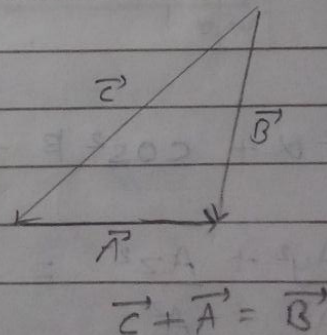 C⃗
B⃗
A⃗
C⃗ + A⃗ = B⃗